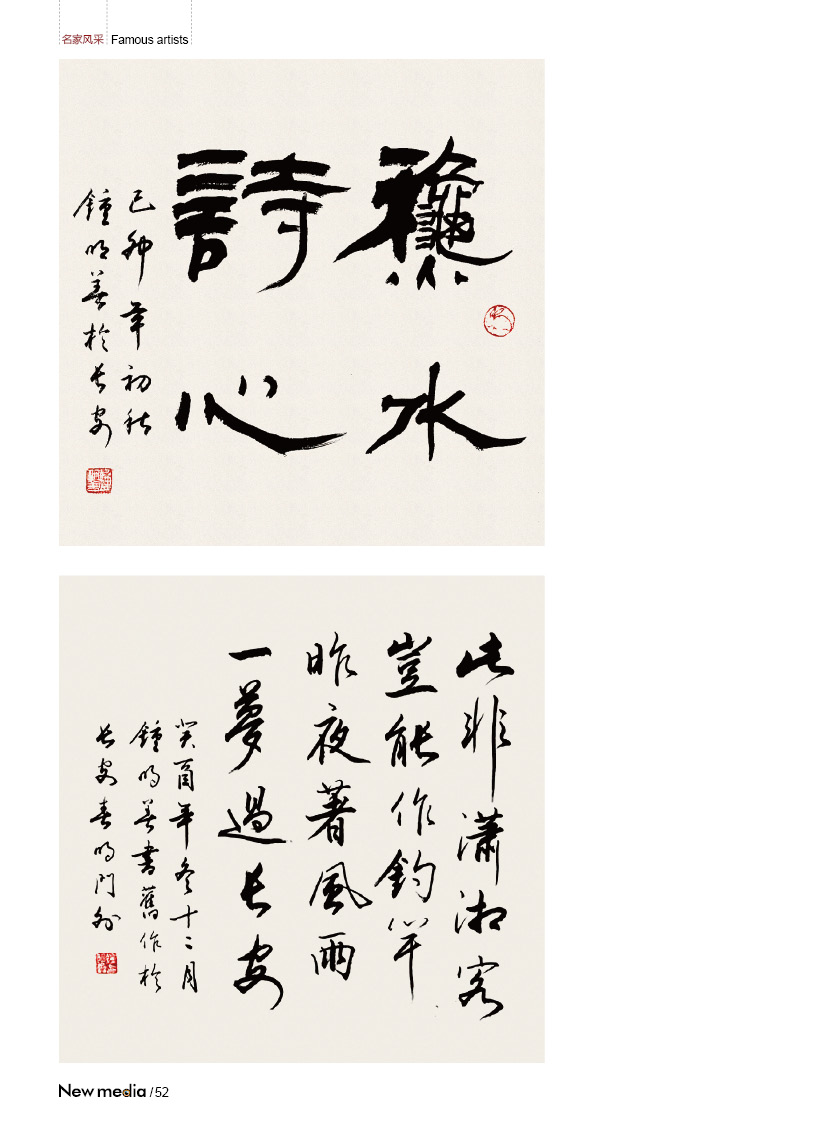 名家风采 Famous artists
龝水
詩心
己卯年初秋
鐘明善於長安
此非瀟湘客
豈能作釣竿
昨夜著風雨
一夢過長安
癸酉年冬十二月
鐘明善書舊作於
長安春明門外
New media / 52